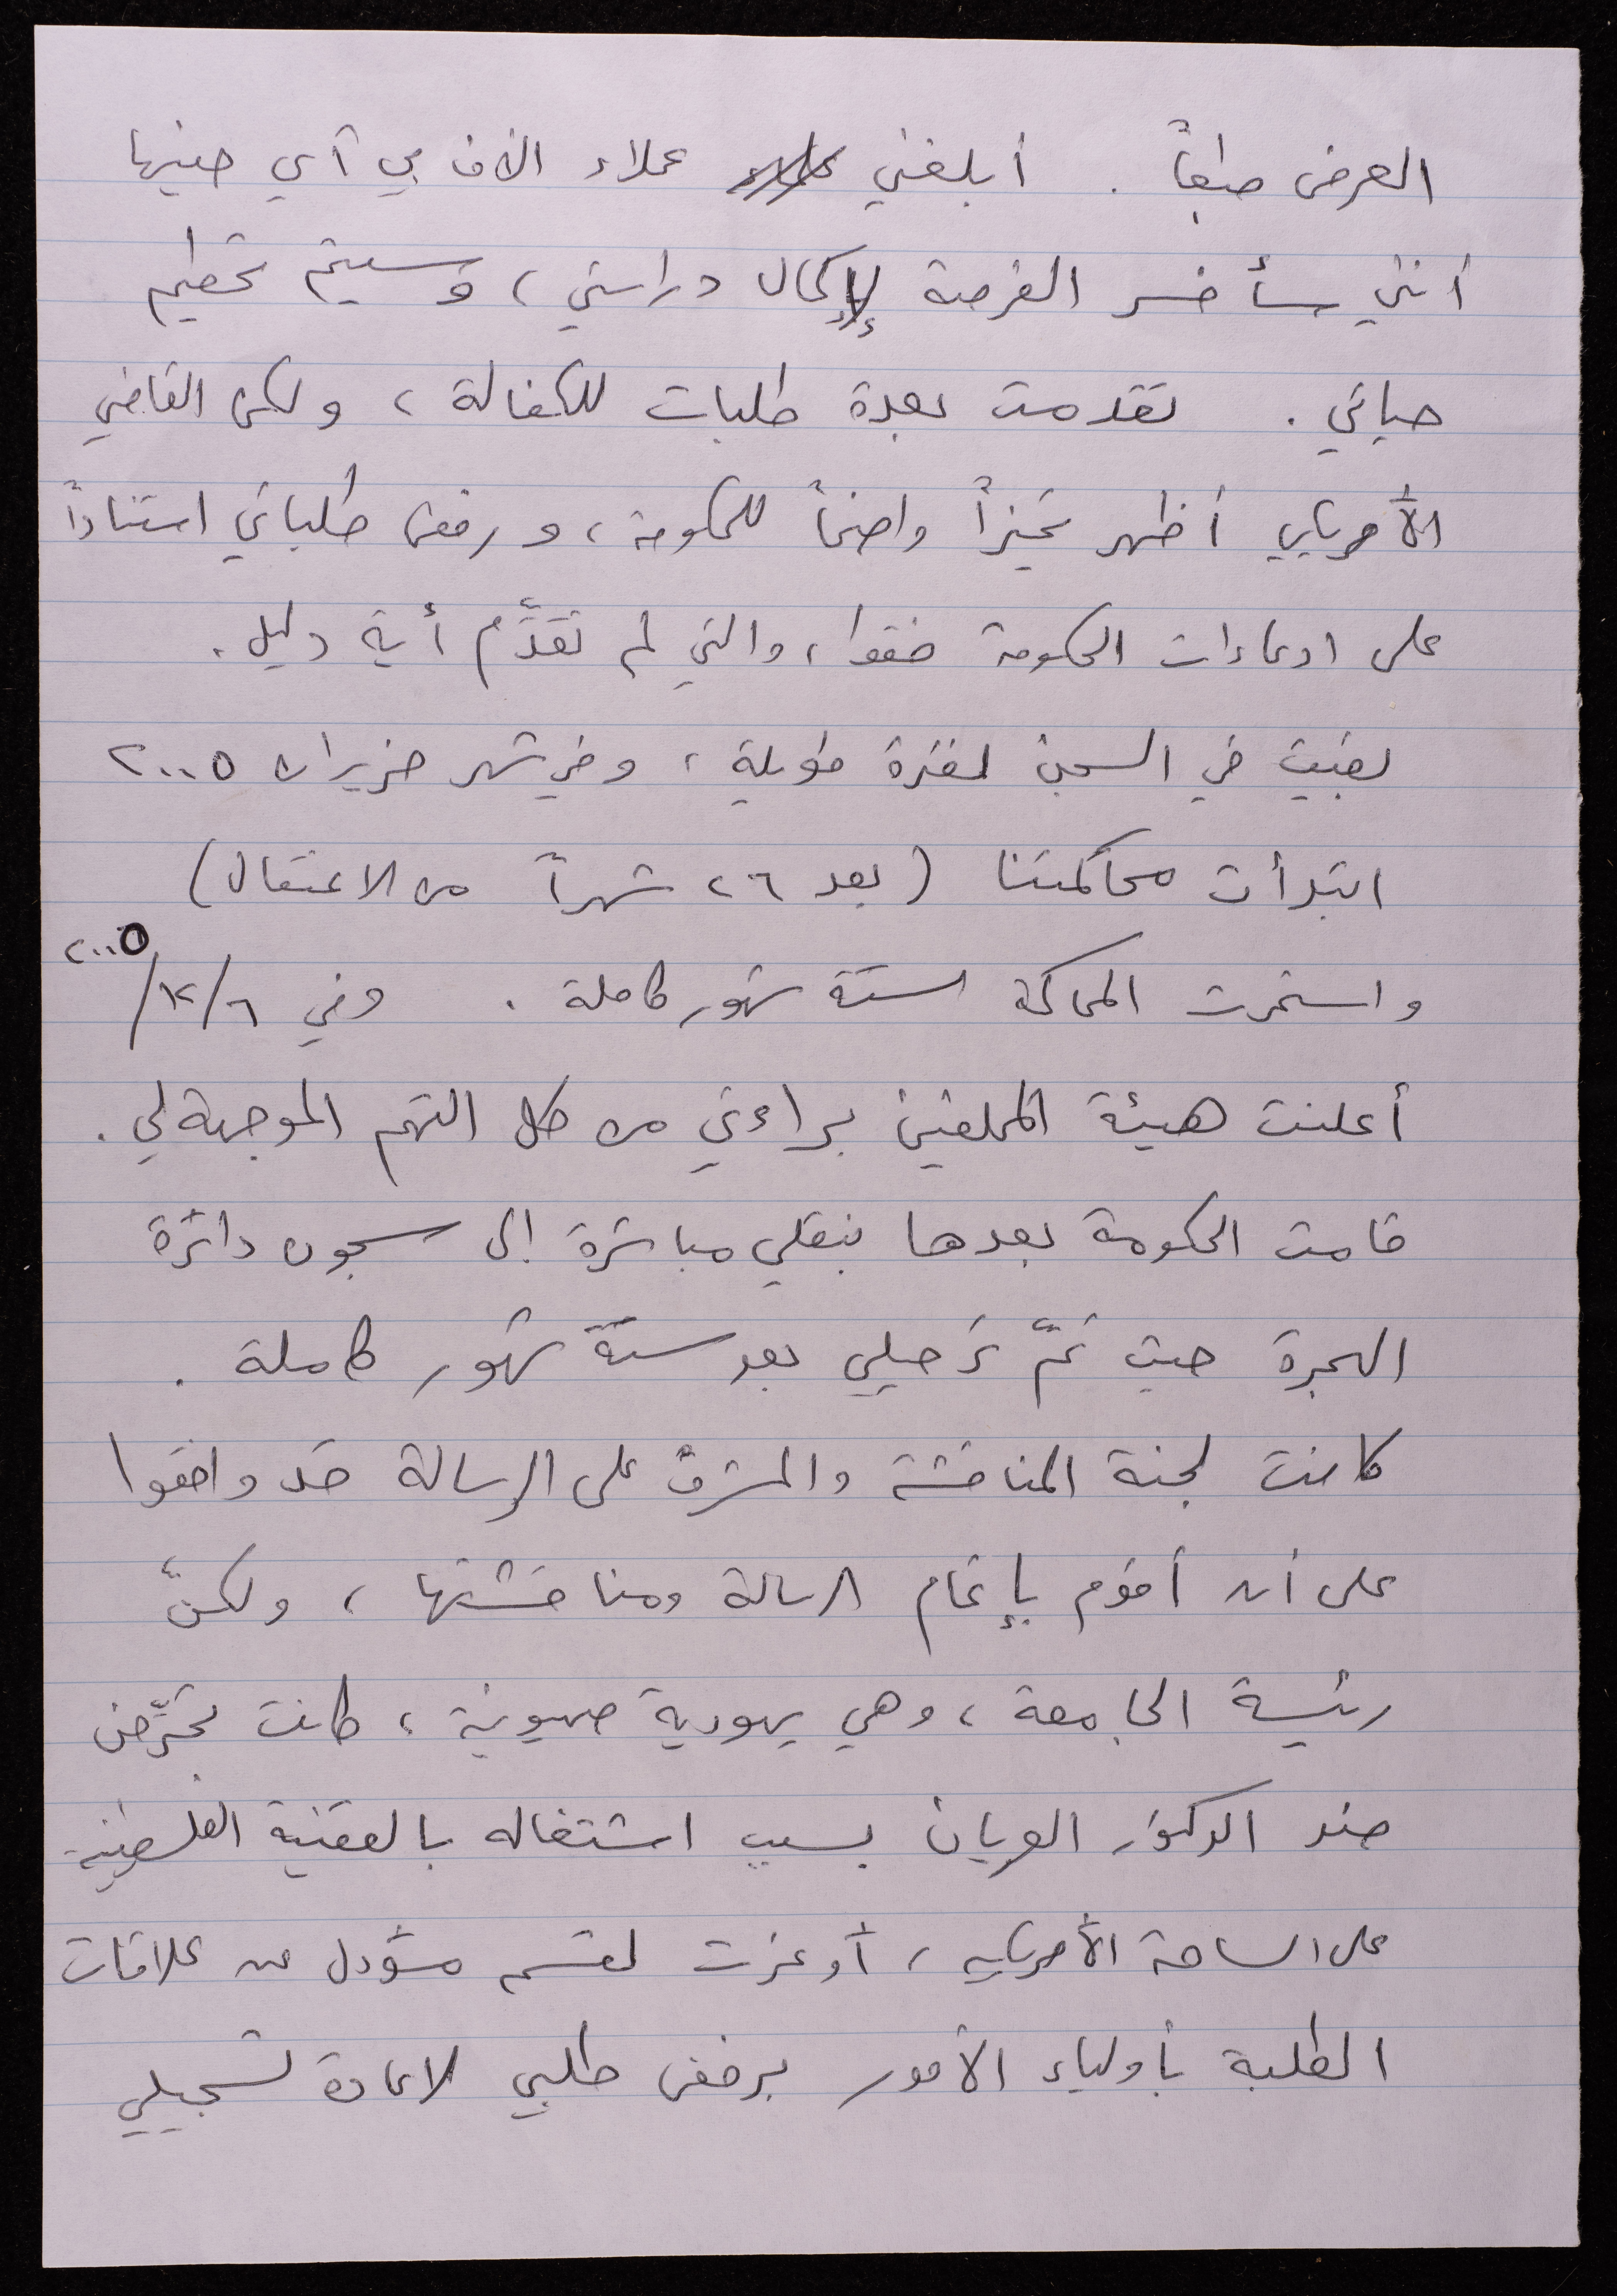 العرض طبعاً. أبلغني عملاء الاف بي آي حينها
أنني سأخسر الفرصة لإكمال دراستي، وسيتم تحطيم
حياتي. تقدمت بعدة طلبات للكفالة، ولكن القاضي
الأمريكي أظهر تحيزاً واضحاً للحكومة، ورفض طلباتي استناداً
على ادعاءات الحكومة فقط، والتي لم تقدَّم أية دليل.
بقيت في السجن لفترة طويلة، وفي شهر حزيران ٢٠٠٥
ابتدأت محاكمتنا (بعد ٢٦ شهراً من الاعتقال)
واستمرت المحاكمة لستة شهور كاملة. وفي ٦/١٢/٢٠٠٥
أعلنت هيئة المحلفين براءتي من كل التهم الموجهة لي.
قامت الحكومة بعدها بنقلي مباشرة إلى سجون دائرة
الهجرة حيث تمّ ترحيلي بعد ستّة شهور كاملة.
كانت لجنة المناقشة والمشرف على الرسالة قد وافقوا
على أن أقوم بإتمام الرسالة ومناقشتها، ولكنّ
رئيسة الجامعة، وهي يهودية صهيونية، كانت تحرّض
ضد الدكتور العريان بسبب اشتغاله بالقضية الفلسطينية
على الساحة الأمريكية، أوعزت لقسم مسؤول عن علاقات
الطلبة بأولياء الأمور برفض طلبي لاعادة تسجيلي